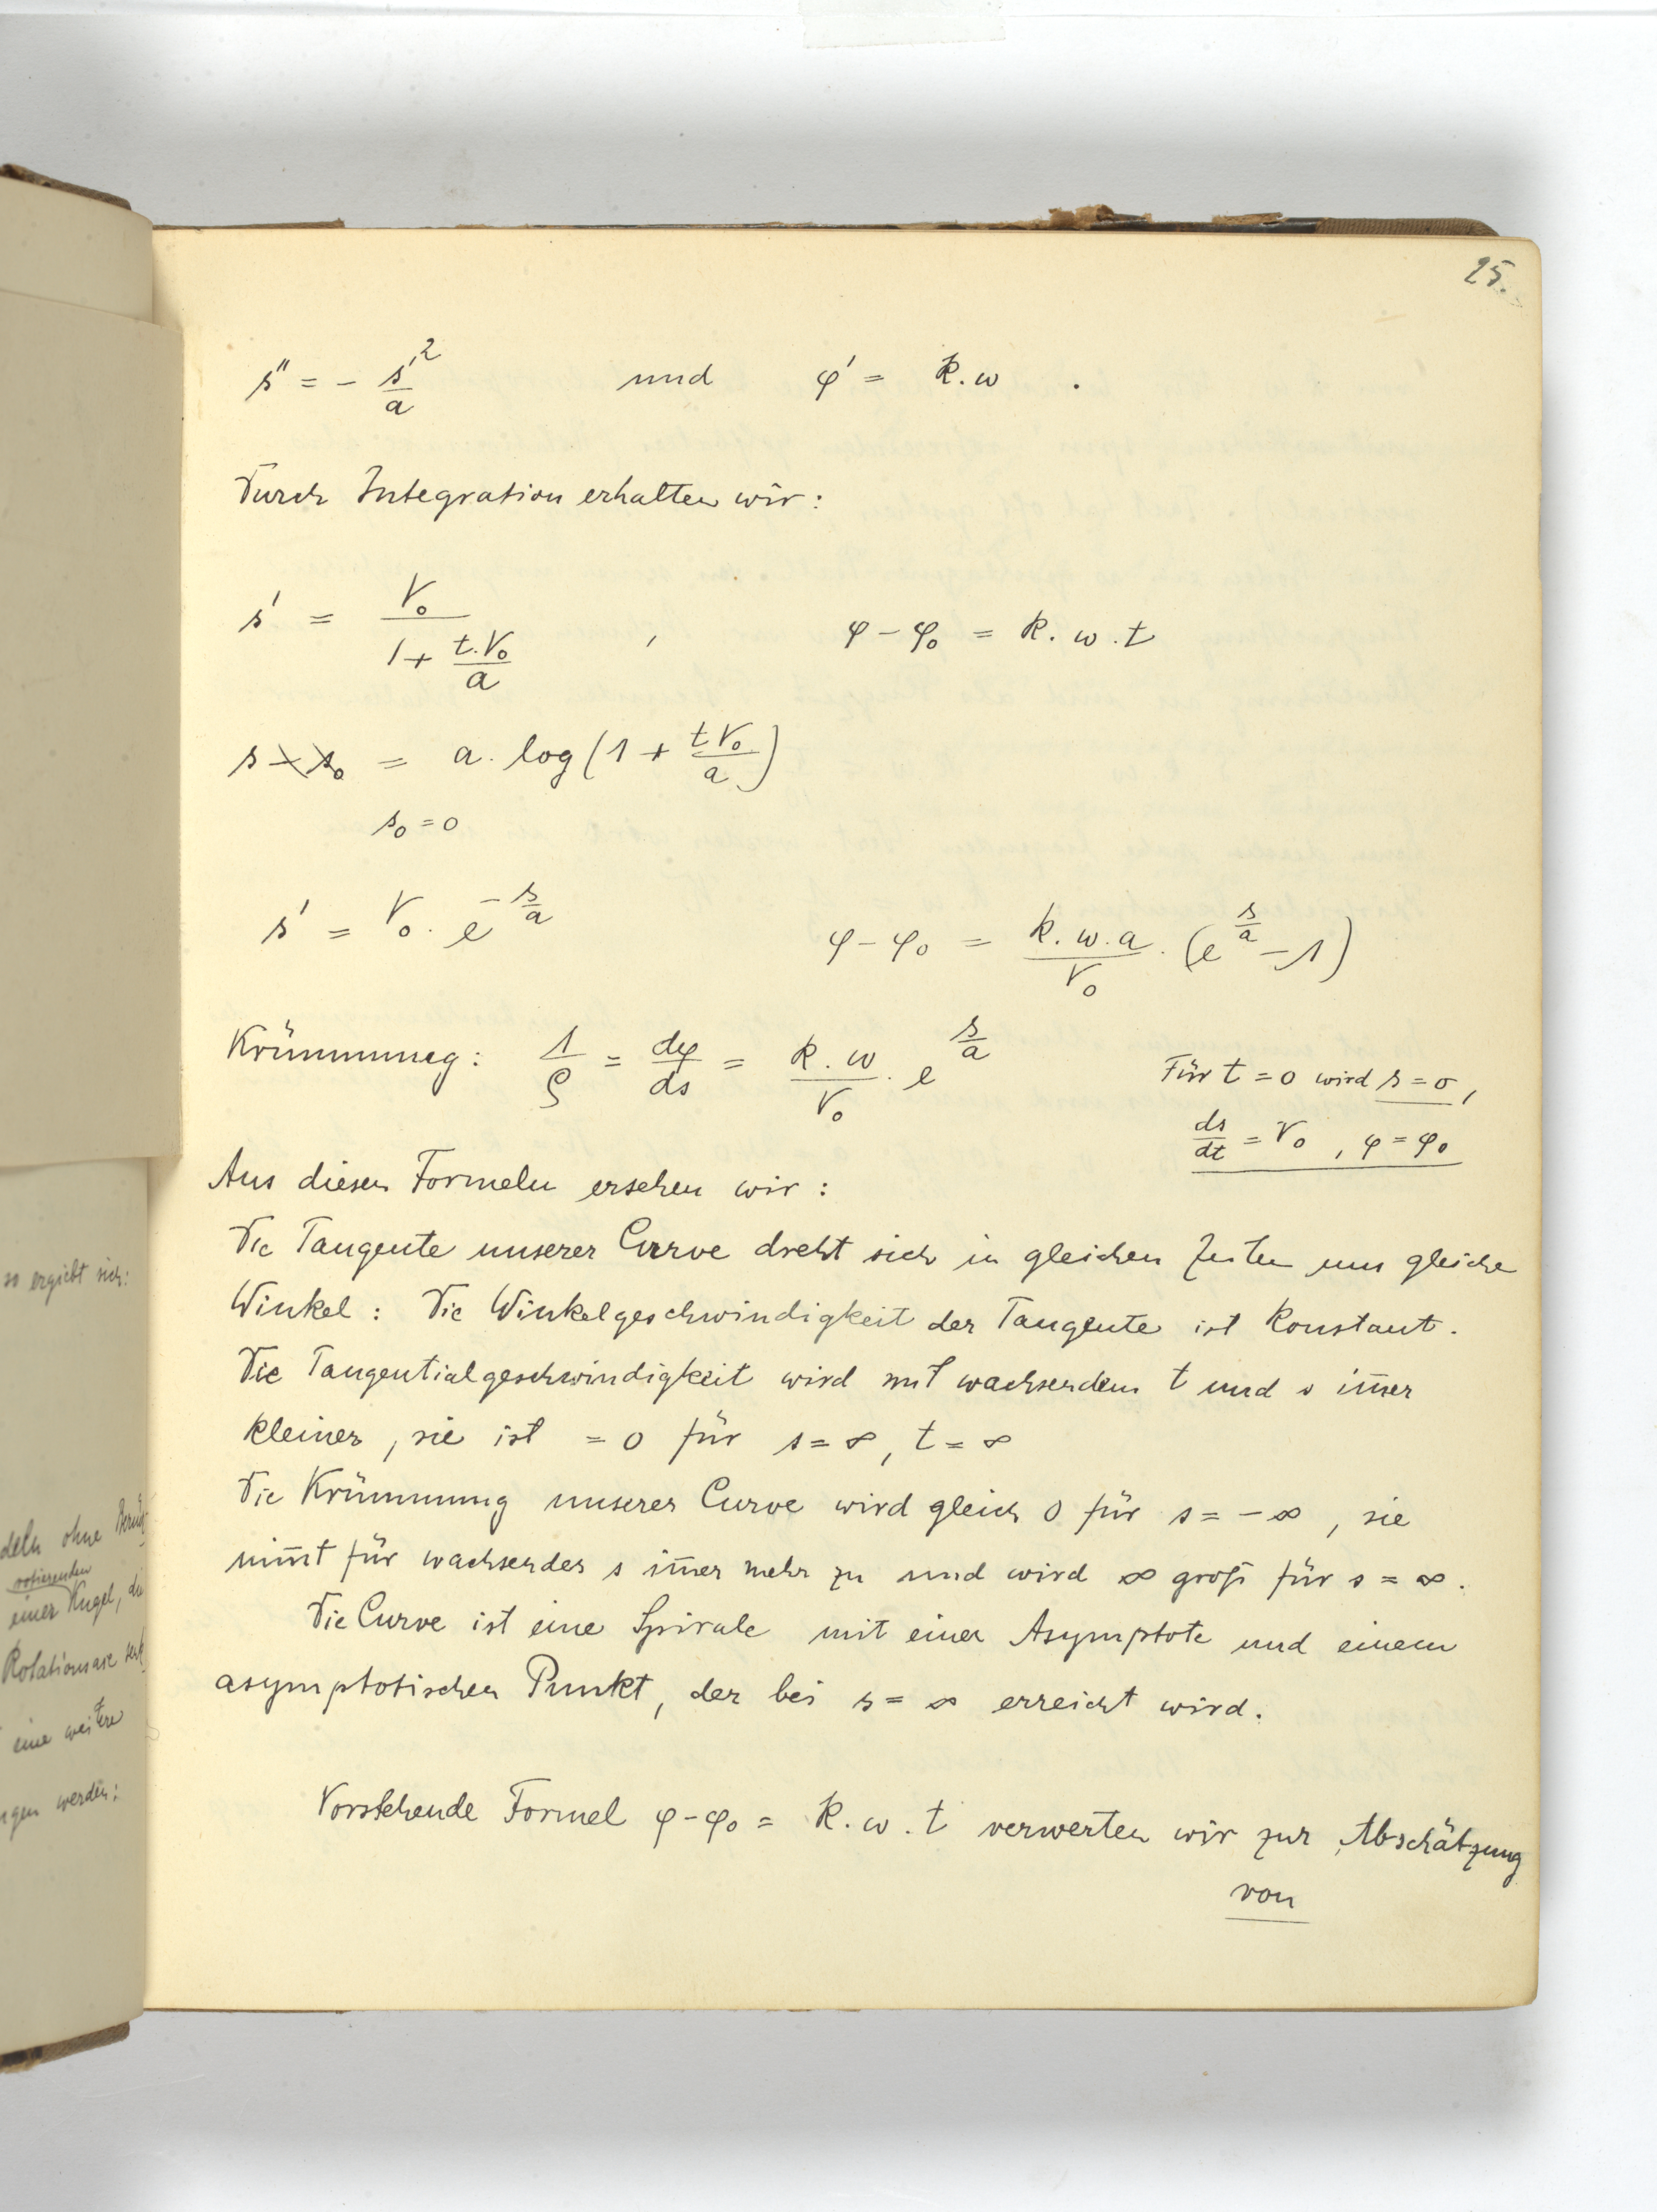 25.
s'' = - s'²/a und φ' = k.w .
Durch Integration erhalten wir:
s' = V₀ / (1 + t.V₀/a) , φ - φ₀ = k. w . t
s - s₀ = a. log (1 + t.V₀/a)
s₀ = 0
s' = V₀ . e^(-s/a) φ - φ₀ = k. w. a / V₀ . (e^(s/a) - 1)
Krümmung: 1/ρ = dφ/ds = k . w / V₀ . e^(s/a)
Für t = 0 wird s = 0,
ds/dt = V₀ , φ = φ₀
Aus diesen Formeln ersehen wir:
Die Tangente unserer Curve dreht sich in gleichen Zeiten um gleiche
Winkel: Die Winkelgeschwindigkeit der Tangente ist konstant.
Die Tangentialgeschwindigkeit wird mit wachsendem t und s im̄er
kleiner, sie ist = 0 für s = ∞, t = ∞
Die Krümmung unserer Curve wird gleich 0 für s = - ∞, sie
nim̄t für wachsendes s im̄er mehr zu und wird ∞ groß für s = ∞.
Die Curve ist eine Spirale mit einer Asymptote und einem
asymptotischen Punkt, der bei s = ∞ erreicht wird.
Vorstehende Formel φ - φ₀ = k. w . t verwerten wir zur Abschätzung
von
so ergiebt sich:
deln ohne
rotierenden
einer Kugel,
Rotationsaxe
eine weitere
werden: